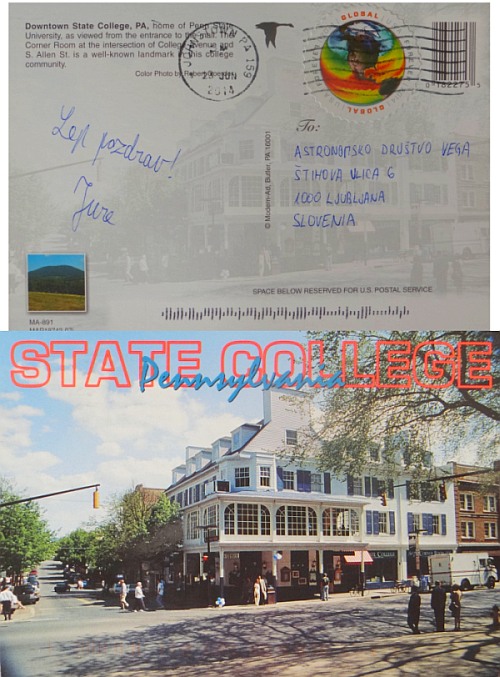 Downtown State College, PA, home of Penn State
University, as viewed from the entrance to the mall. The
Corner Room at the intersection of College Avenue and
S. Allen St. is a well-known landmark in this college
community.
Color Photo by Robert
JOHNSTOWN PA 159
23 JUN
2014
GLOBAL
GLOBAL
Lep pozdrav!
Jure
To:
ASTRONOMSKO DRUŠTVO VEGA
ŠTIHOVA ULICA 6
1000 LJUBLJANA
SLOVENIA
© Modern-Ad, Butler, PA 16001
SPACE BELOW RESERVED FOR U.S. POSTAL SERVICE
MA-891
STATE COLLEGE
Pennsylvania